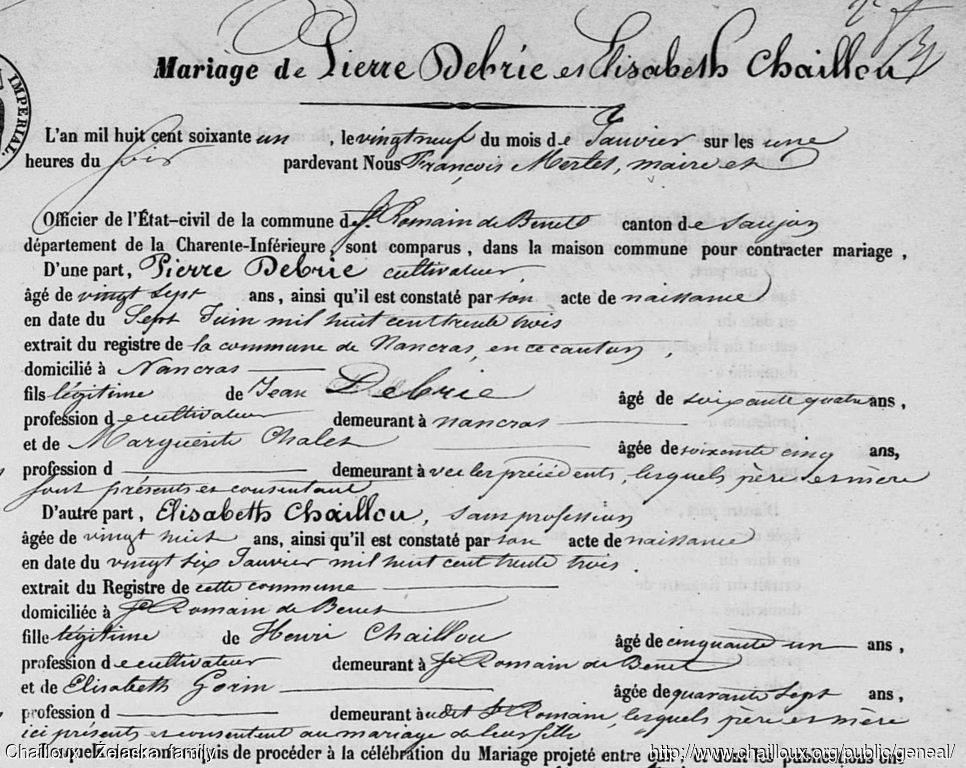 Mariage de Pierre Debrie et Elisabeth Chaillou
IMPERIAL.
L'an mil huit cent soixante un , le vingt neuf du mois de Janvier sur les une
heures du soir pardevant Nous François Merlet, maire et
Officier de l'État-civil de la commune de St. Romain de Benet canton de Saujon
département de la Charente-Inférieure, sont comparus, dans la maison commune pour contracter mariage,
D'une part, Pierre Debrie cultivateur
âgé de vingt sept ans, ainsi qu'il est constaté par son acte de naissance
en date du Sept Juin mil huit cent trente trois
extrait du registre de la commune de Nancras, en ce canton,
domicilié à Nancras
fils légitime de Jean Debrie âgé de soixante quatre ans,
profession de cultivateur demeurant à nancras
et de Marguerite Chales âgée de soixante cinq ans,
profession d demeurant avec les précédents, lesquels père et mère
sont présents et consentant
D'autre part, Elisabeth Chaillou, sans profession
âgée de vingt huit ans, ainsi qu'il est constaté par son acte de naissance
en date du vingt six Janvier mil huit cent trente trois.
extrait du Registre de cette commune
domiciliée à St Romain de Benet
fille légitime de Henri Chaillou âgé de cinquante un ans,
profession de cultivateur demeurant à St Romain de Benet
et de Elisabeth Gorin âgée de quarante sept ans,
profession d demeurant audit St Romain, lesquels père et mère
ici présents et consentent au mariage de leur fille
Lesquels nous ont requis de procéder à la célébration du Mariage projeté entre eux, et dont les publications ont
Chailloux Zelaska family
http://www.chailloux.org/public/geneal/